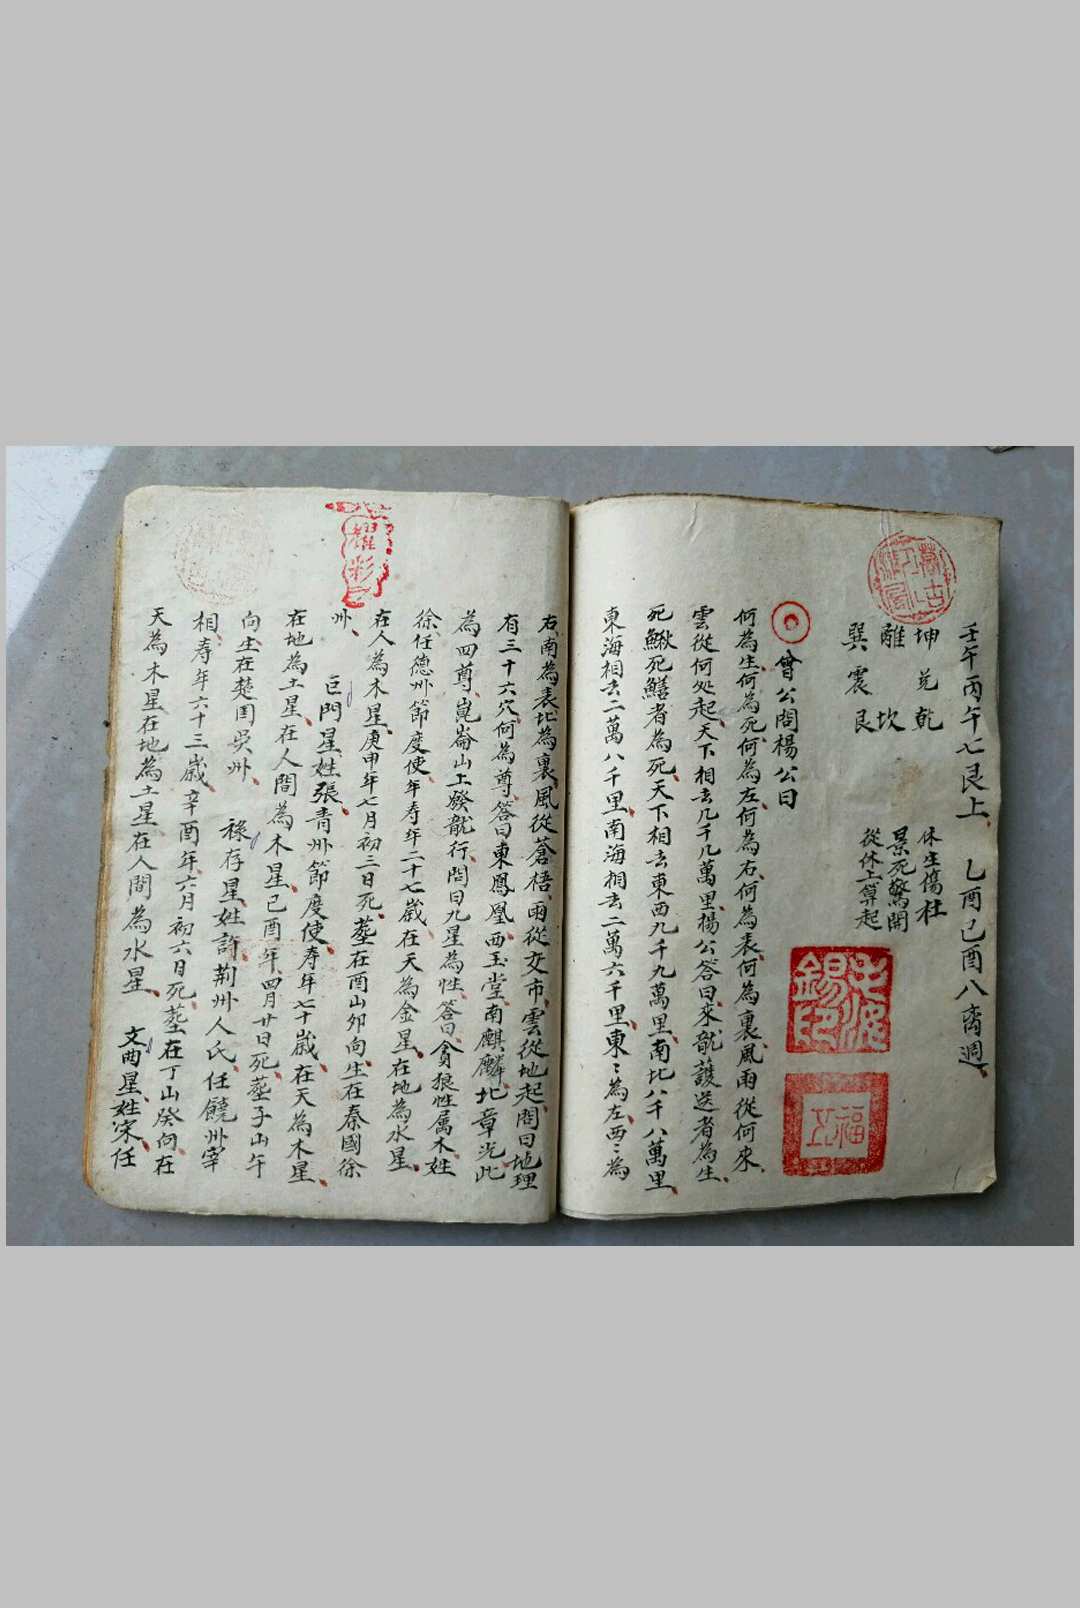 壬午丙午七艮上 乙酉己酉八离週
坤兑乾
離 坎
巽震艮
休生傷杜
景死驚開
從休上算起
曾公問楊公曰
何為生何為死何為左何為右何為表何為裏風雨從何來
雲從何処起天下相去几千几萬里楊公答曰來龍護送者為生
死鰍死鱔者為死天下相去東西九千九萬里南北八千八萬里
東海相去二萬八千里南海相去二萬六千里東〻為左西〻為
右南為表北為裏風從蒼梧雨從交市雲從地起問曰地理
有三十六穴何為尊答曰東鳳凰西玉堂南麒麟北章光此
為四尊崑崙山上發龍行問曰九星為性答曰貪狼性属木姓
徐任德州節度使年寿年二十七歲在天為金星在地為水星
在人為木星庚申年七月初三日死塟在酉山卯向生在秦國徐
州 巨門星姓張青州節度使寿年七十歲在天為木星
在地為土星在人間為木星己酉年四月廿日死塟子山午
向生在楚国吳州 祿存星姓許荆州人氏任饒州宰
相寿年六十三歲辛酉年六月初六日死塟在丁山癸向在
天為木星在地為土星在人間為水星 文曲星姓宋任
耀彩
福